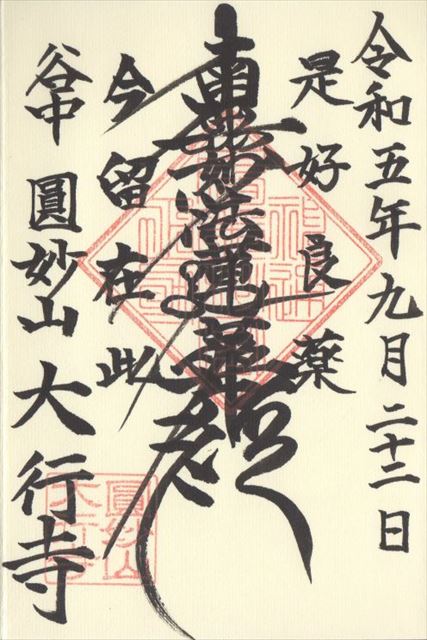 令和五年九月二十二日
是好良薬
南無妙法蓮華経
今留在此
谷中 圓妙山 大行寺
圓妙山
大行寺